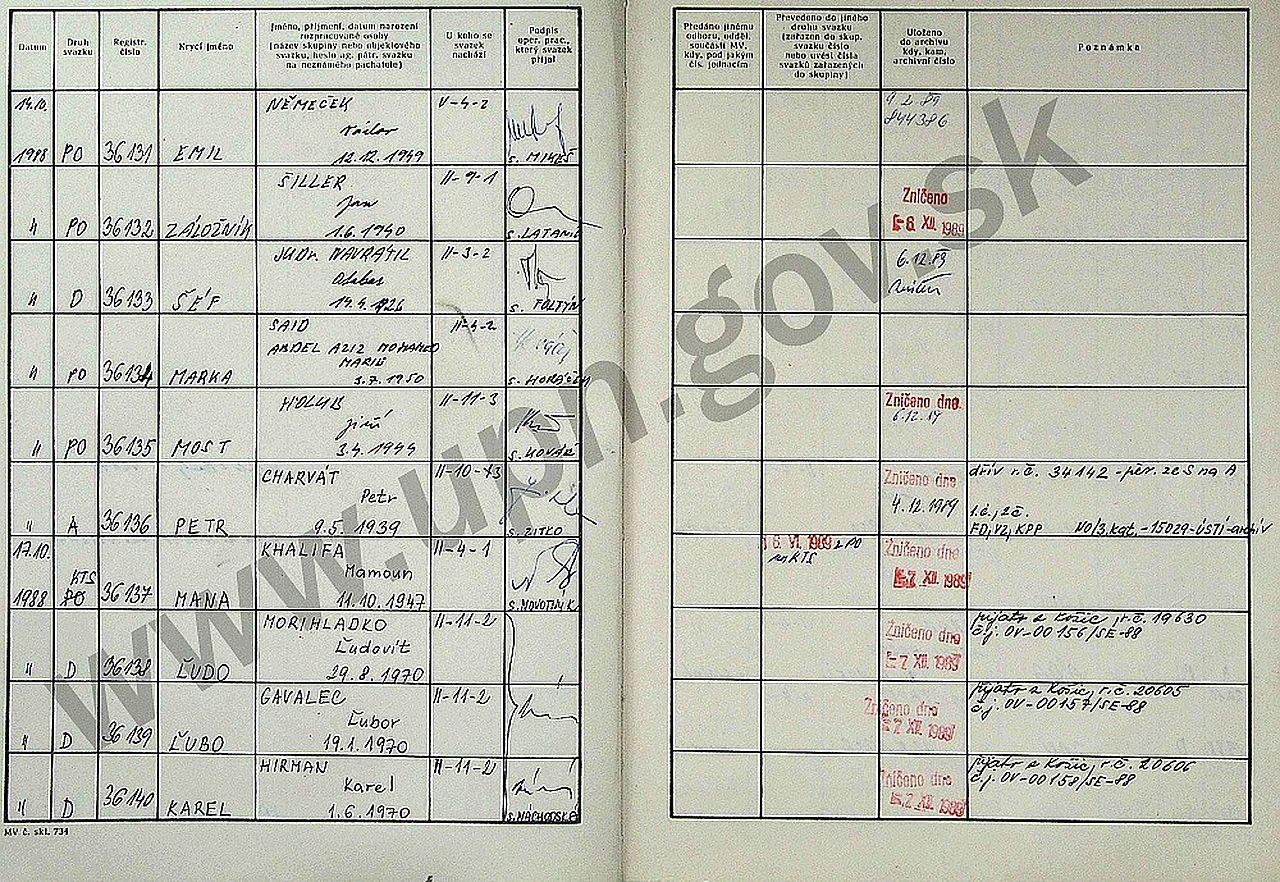 Datum
Druh svazku
Registr. číslo
Krycí jméno
Jméno, příjmení, datum narození
rozpracované osoby
(název skupiny nebo objektového
svazku, heslo ag. pátr. svazku
na neznámého pachatele)
U koho se
svazek
nachází
Podpis
oper. prac.,
který svazek
přijal
Předáno jinému
odboru, odděl.
součásti MV.
kdy, pod jakým
čís. jednacím
Převedeno do jiného
druhu svazku
(zařazen do skup.
svazku číslo
nebo uvést čísla
svazků zařazených
do skupiny)
Uloženo
do archivu
kdy, kam,
archivní číslo
Poznámka
14.10. NĚMEČEK V-4-2
Václav
1988 PO 36131 EMIL 12.12.1949 s. MIKEŠ
9.2.89
844386
ŠILLER II-9-1
Jan
" PO 36132 ZÁLOŽNÍK 1.6.1940
Zničeno
-6. XII. 1989
JUDr. NAVRÁTIL II-3-2
" D 36133 ŠÉF 14.4.1926 s. FOLTÝN
6.12.89
SAID II-4-2
ABDEL AZIZ MOHAMED
" PO 36134 MARKA 3.7.1950 s. HORÁČEK
HOLUB II-11-3
Jiří
" PO 36135 MOST 3.4.1944 s. KOVÁŘ
Zničeno dne
6.12.89
CHARVÁT II-10-13
Petr
" A 36136 PETR 9.5.1939 s. ZITKO
Zničeno dne
4.12.1989
dřív r.č. 34142 - per. ze S na A
1.č., 2č.
FD, VZ, KPP NO/3.kat. -15029-ÚSTÍ-archív
17.10. KHALIFA II-4-1
KTS Mamoun
1988 PO 36137 MANA 11.10.1947 s. NOVOTNÝ K
6. VI. 1989 z PO
na KTS
Zničeno dne
-7. XII. 1989
MORIHLADKO II-11-2
Ľudovít
" D 36138 ĽUDO 29.8.1970
Zničeno dne
-7. XII. 1989
přijato z Košic, r.č. 19630
č.j. OV-00156/SE-88
GAVALEC II-11-2
Ľubor
" D 36139 ĽUBO 19.1.1970
Zničeno dne
-7. XII. 1989
přijato z Košic, r.č. 20605
č.j. OV-00157/SE-88
HIRMAN II-11-2
Karel
" D 36140 KAREL 1.6.1970 s. NÁCHODSKÝ
Zničeno dne
-7. XII. 1989
přijato z Košic, r.č. 20606
č.j. OV-00158/SE-88
MV č. skl. 734
www.upn.gov.sk